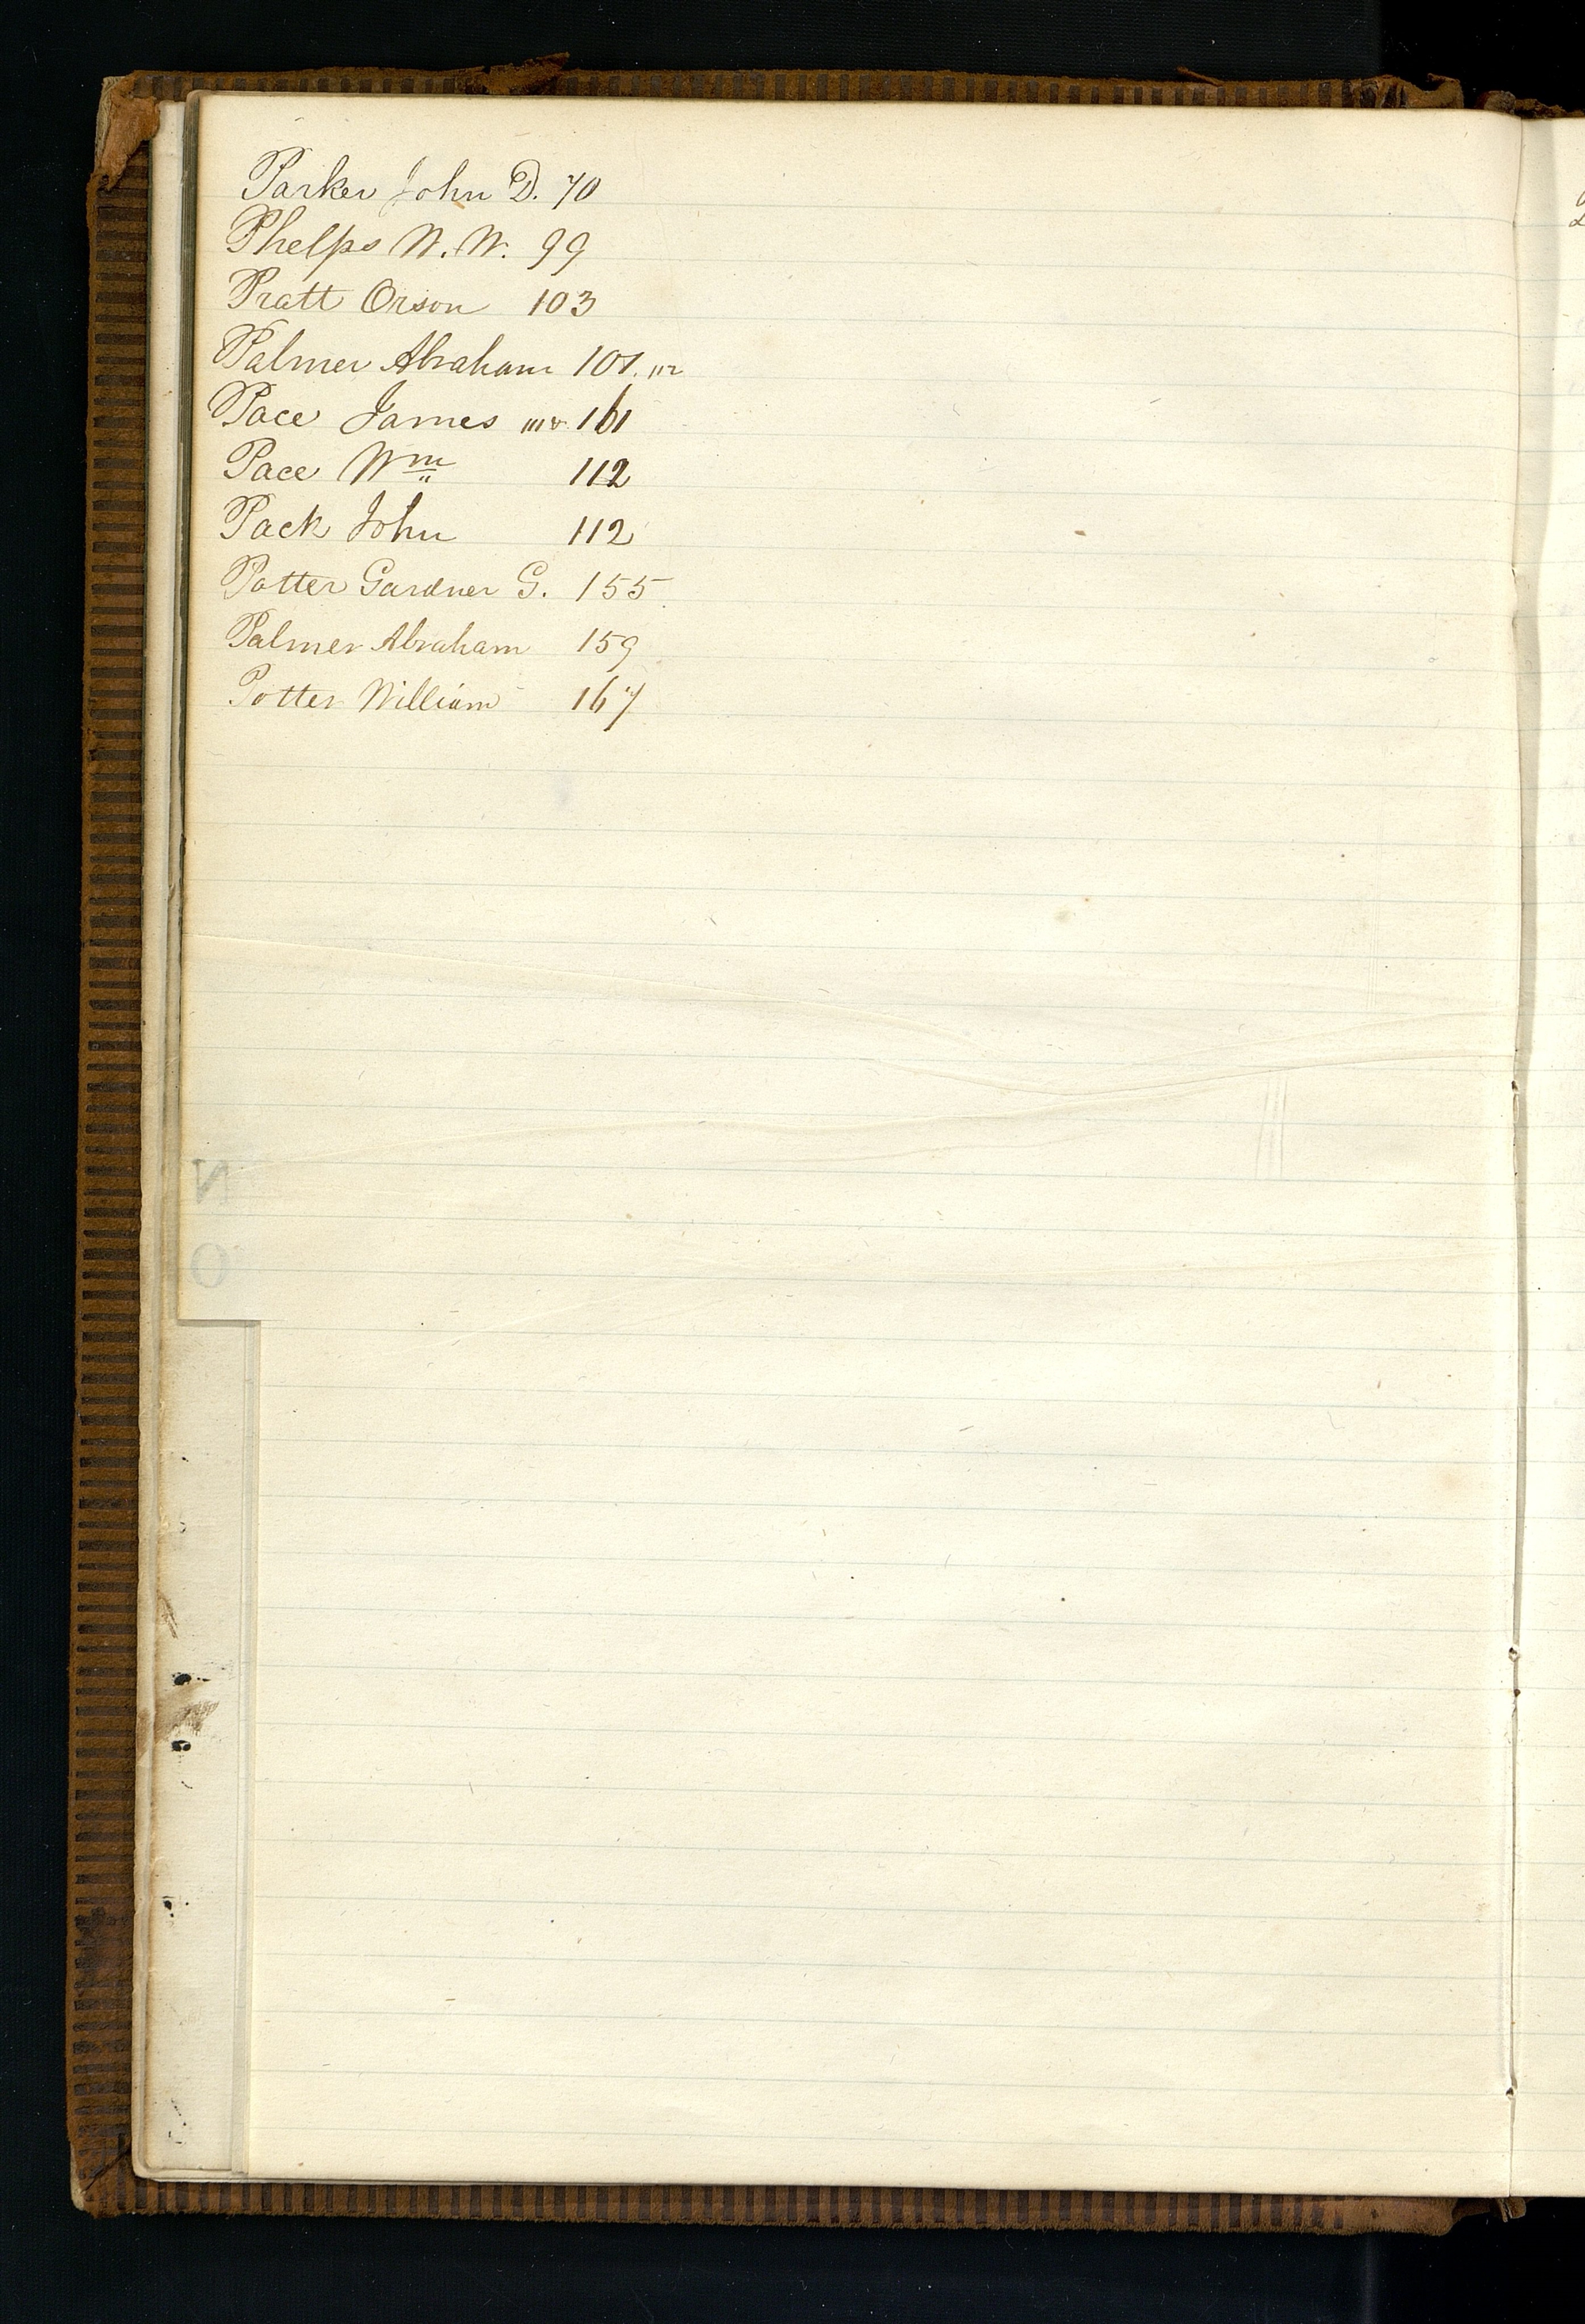 Parker John D. 70
Phelps W. W. 99
Pratt Orson 103
Palmer Abraham 107. 112
Pace James 161
Pace Wm 112
Pack John 112
Potter Gardner G. 155
Palmer Abraham 159
Potter William 167
N
O